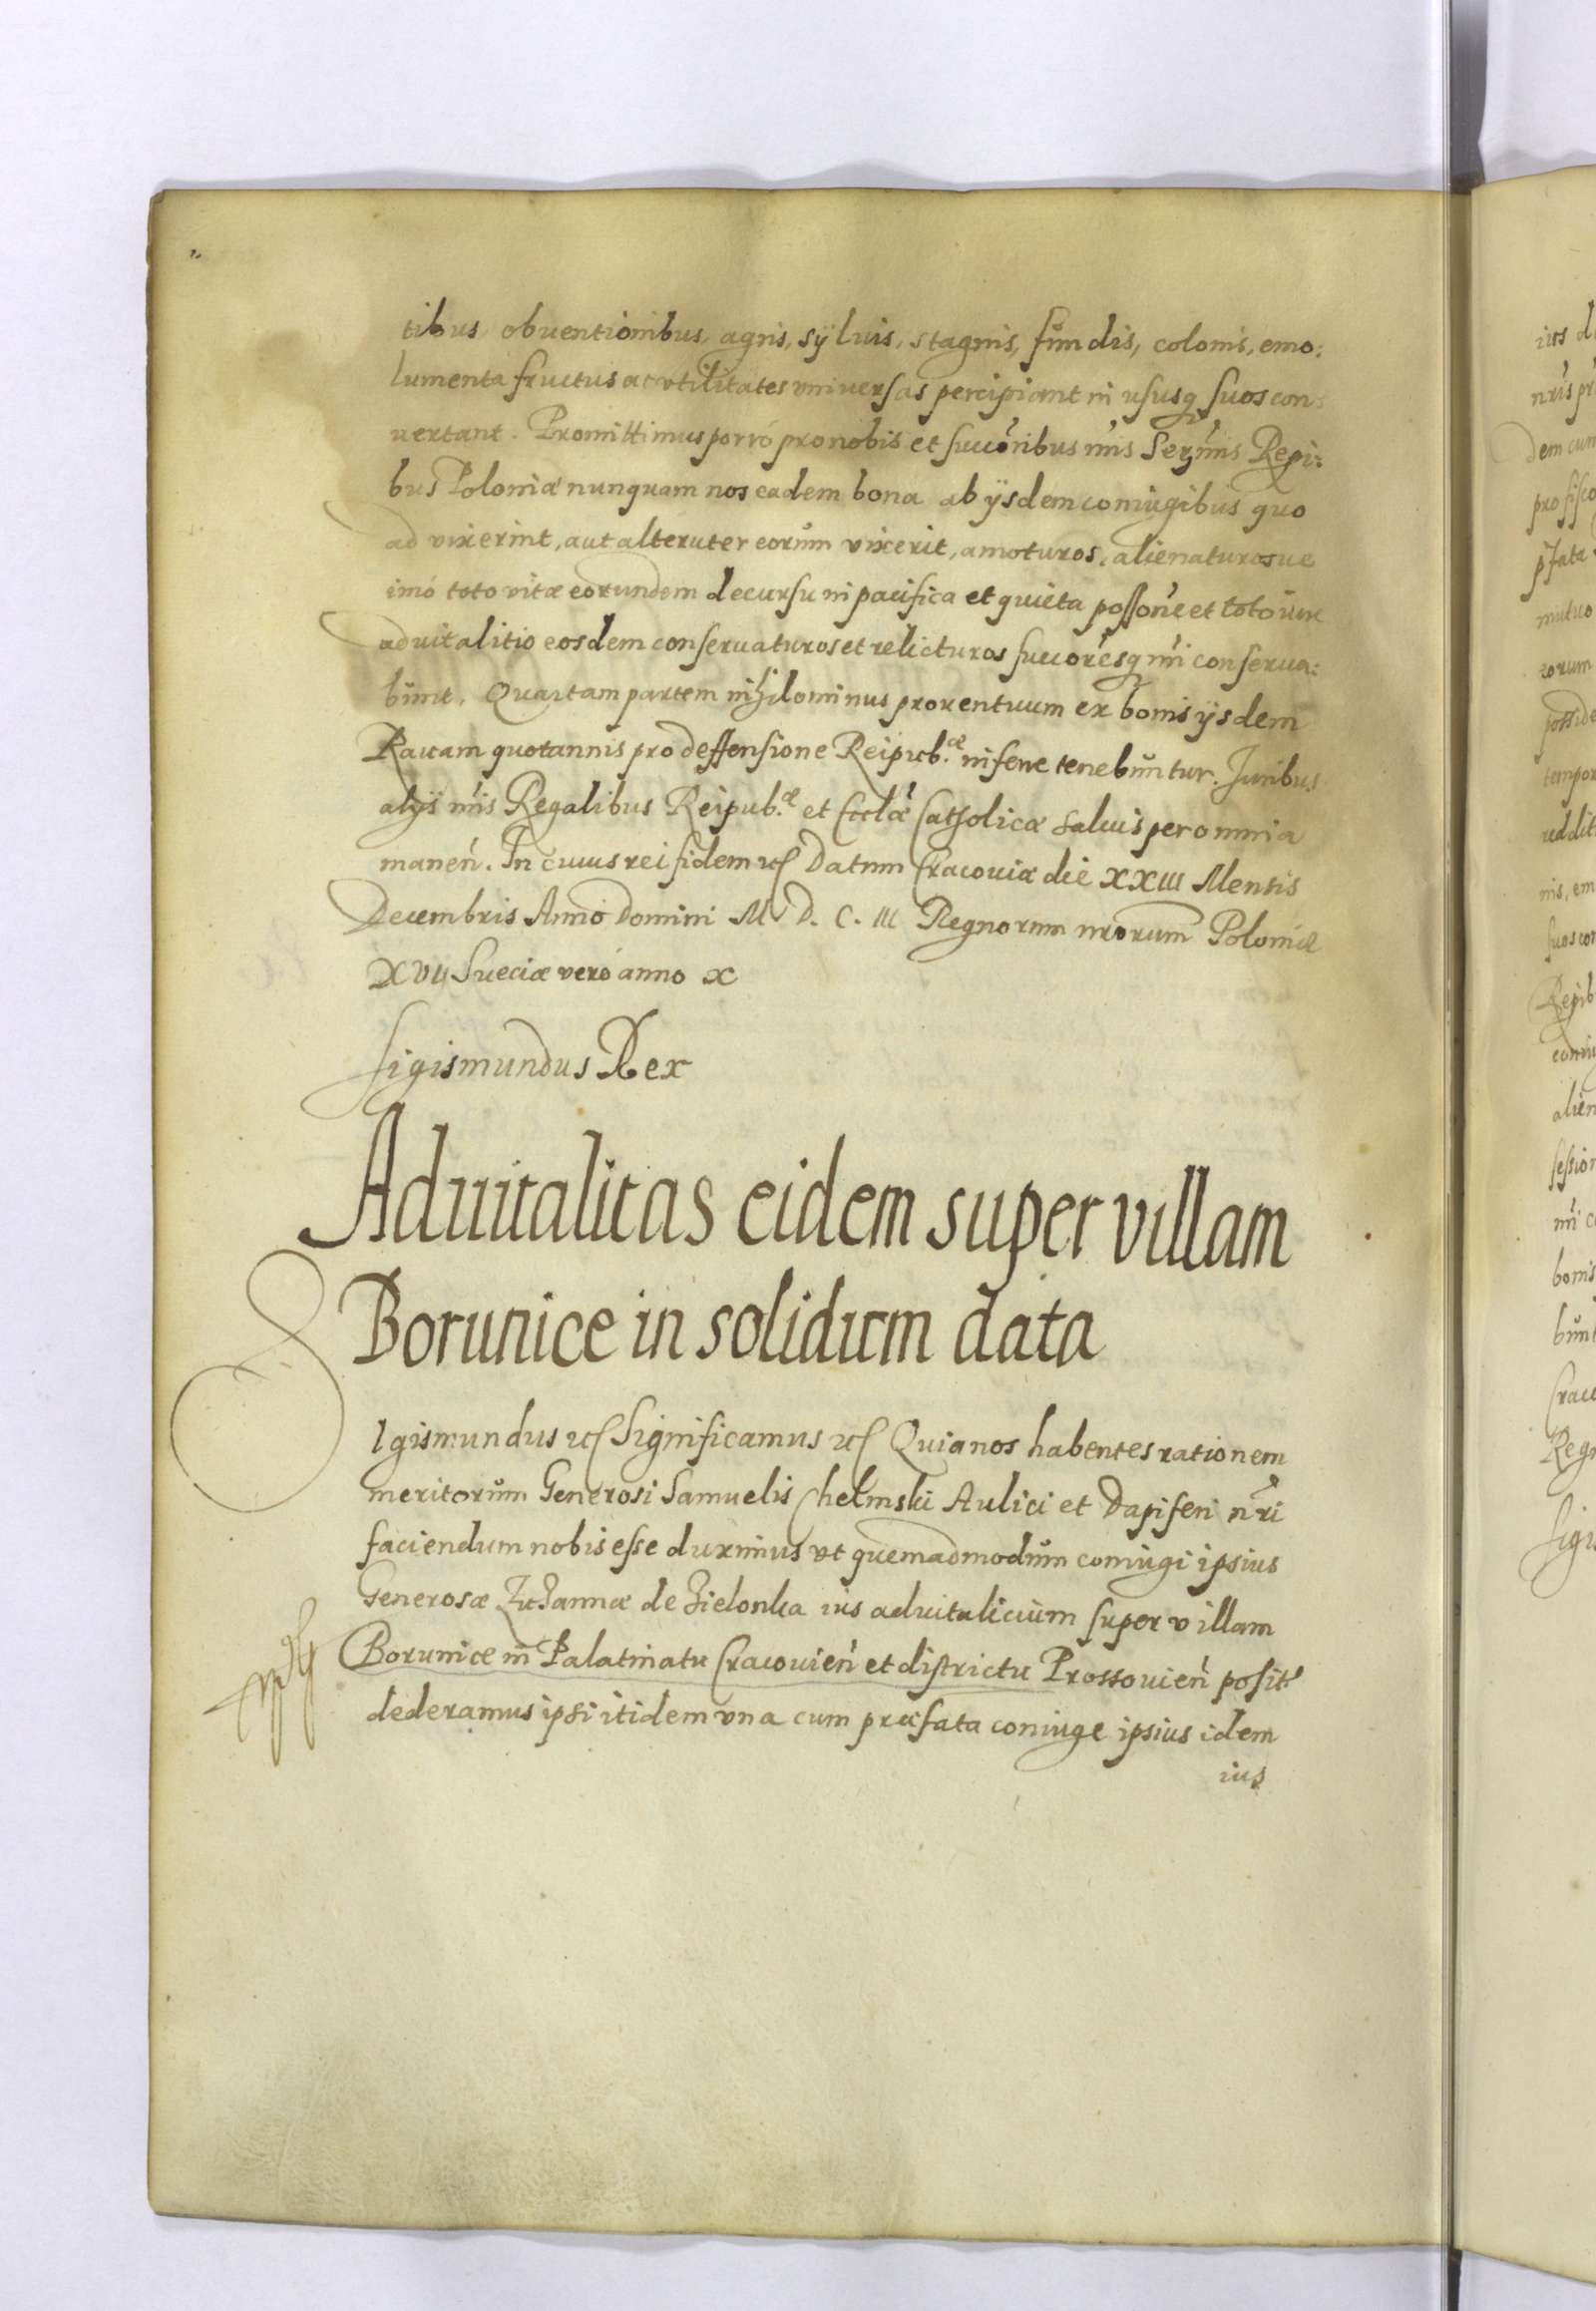 tibus obuentionibus, agris, sÿluis, stagnis, fundis, colonis, emo:
lumenta fructus ac vtilitates vniuersas percipiant in ususq suos con
uertant. Promittimus porró pro nobis et succoribus nris Sermis Regi:
bus Poloniæ nunquam nos eadem bona ab ÿsdem coniugibus quo
ad vixerint, aut alteruter eorum vixerit, amoturos, alienaturosue
imó toto vitæ eorundem decursu in pacifica et quieta possone et toto iure
aduitalitio eosdem conseruaturos et relicturos succoresq nri conserua:
bunt. Quartam partem nihilominus prouentuum ex bonis ÿsdem
Rauam quotannis pro deffensione Reipub.æ inferre tenebuntur. Juribus
alÿs nris Regalibus Reipub.æ et Ecclæ Catholicæ saluis per omnia
manen. In cuius rei fidem etc Datum Cracouiæ die XXIII Mensis
Decembris Anno Domini M. D. C. III Regnorum nrorum Poloniæ
XVII Sueciæ veró anno X
Sigismundus Rex
Aduitalitas eidem super villam
Borunice in solidum data
SIgismundus etc Significamus etc Quia nos habentes rationem
meritorum Generosi Samuelis Chelmski Aulici et Dapiferi nri
faciendum nobis esse duximus vt quemadmodum coniugi ipsius
Generosæ Zuzannæ de Zielonka ius aduitalicium super villam
Borunice in Palatinatu Cracouien et districtu Prossouien posit
dederamus ipsi itidem vna cum præfata coniuge ipsius idem
ius